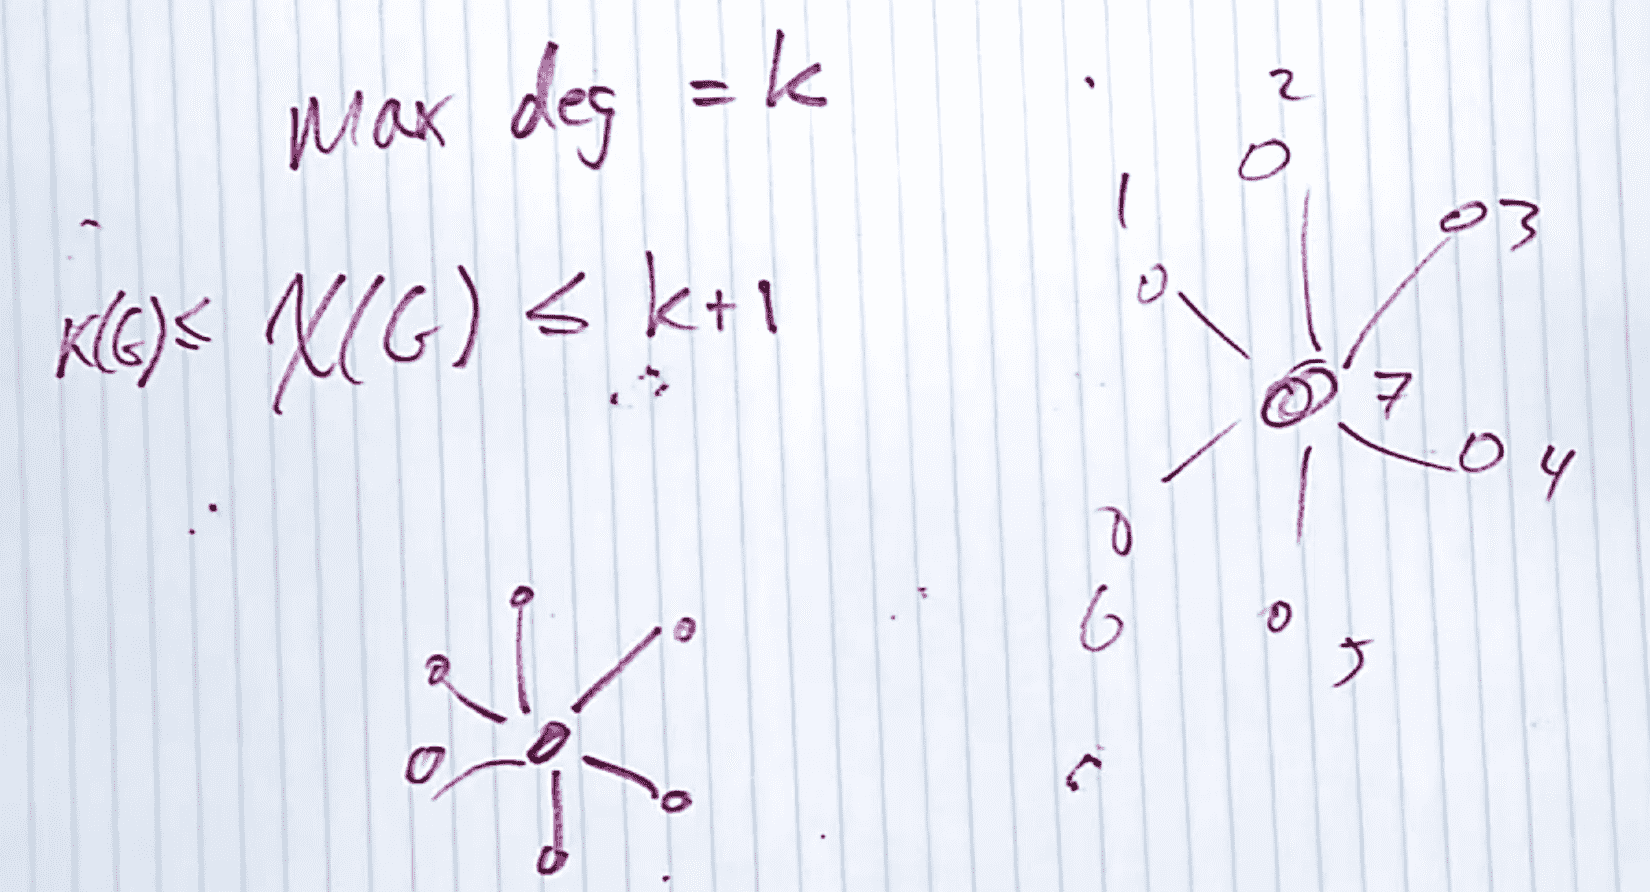 max deg = k
K(G) ≤ χ(G) ≤ k+1
2
1
3
7
4
6
5